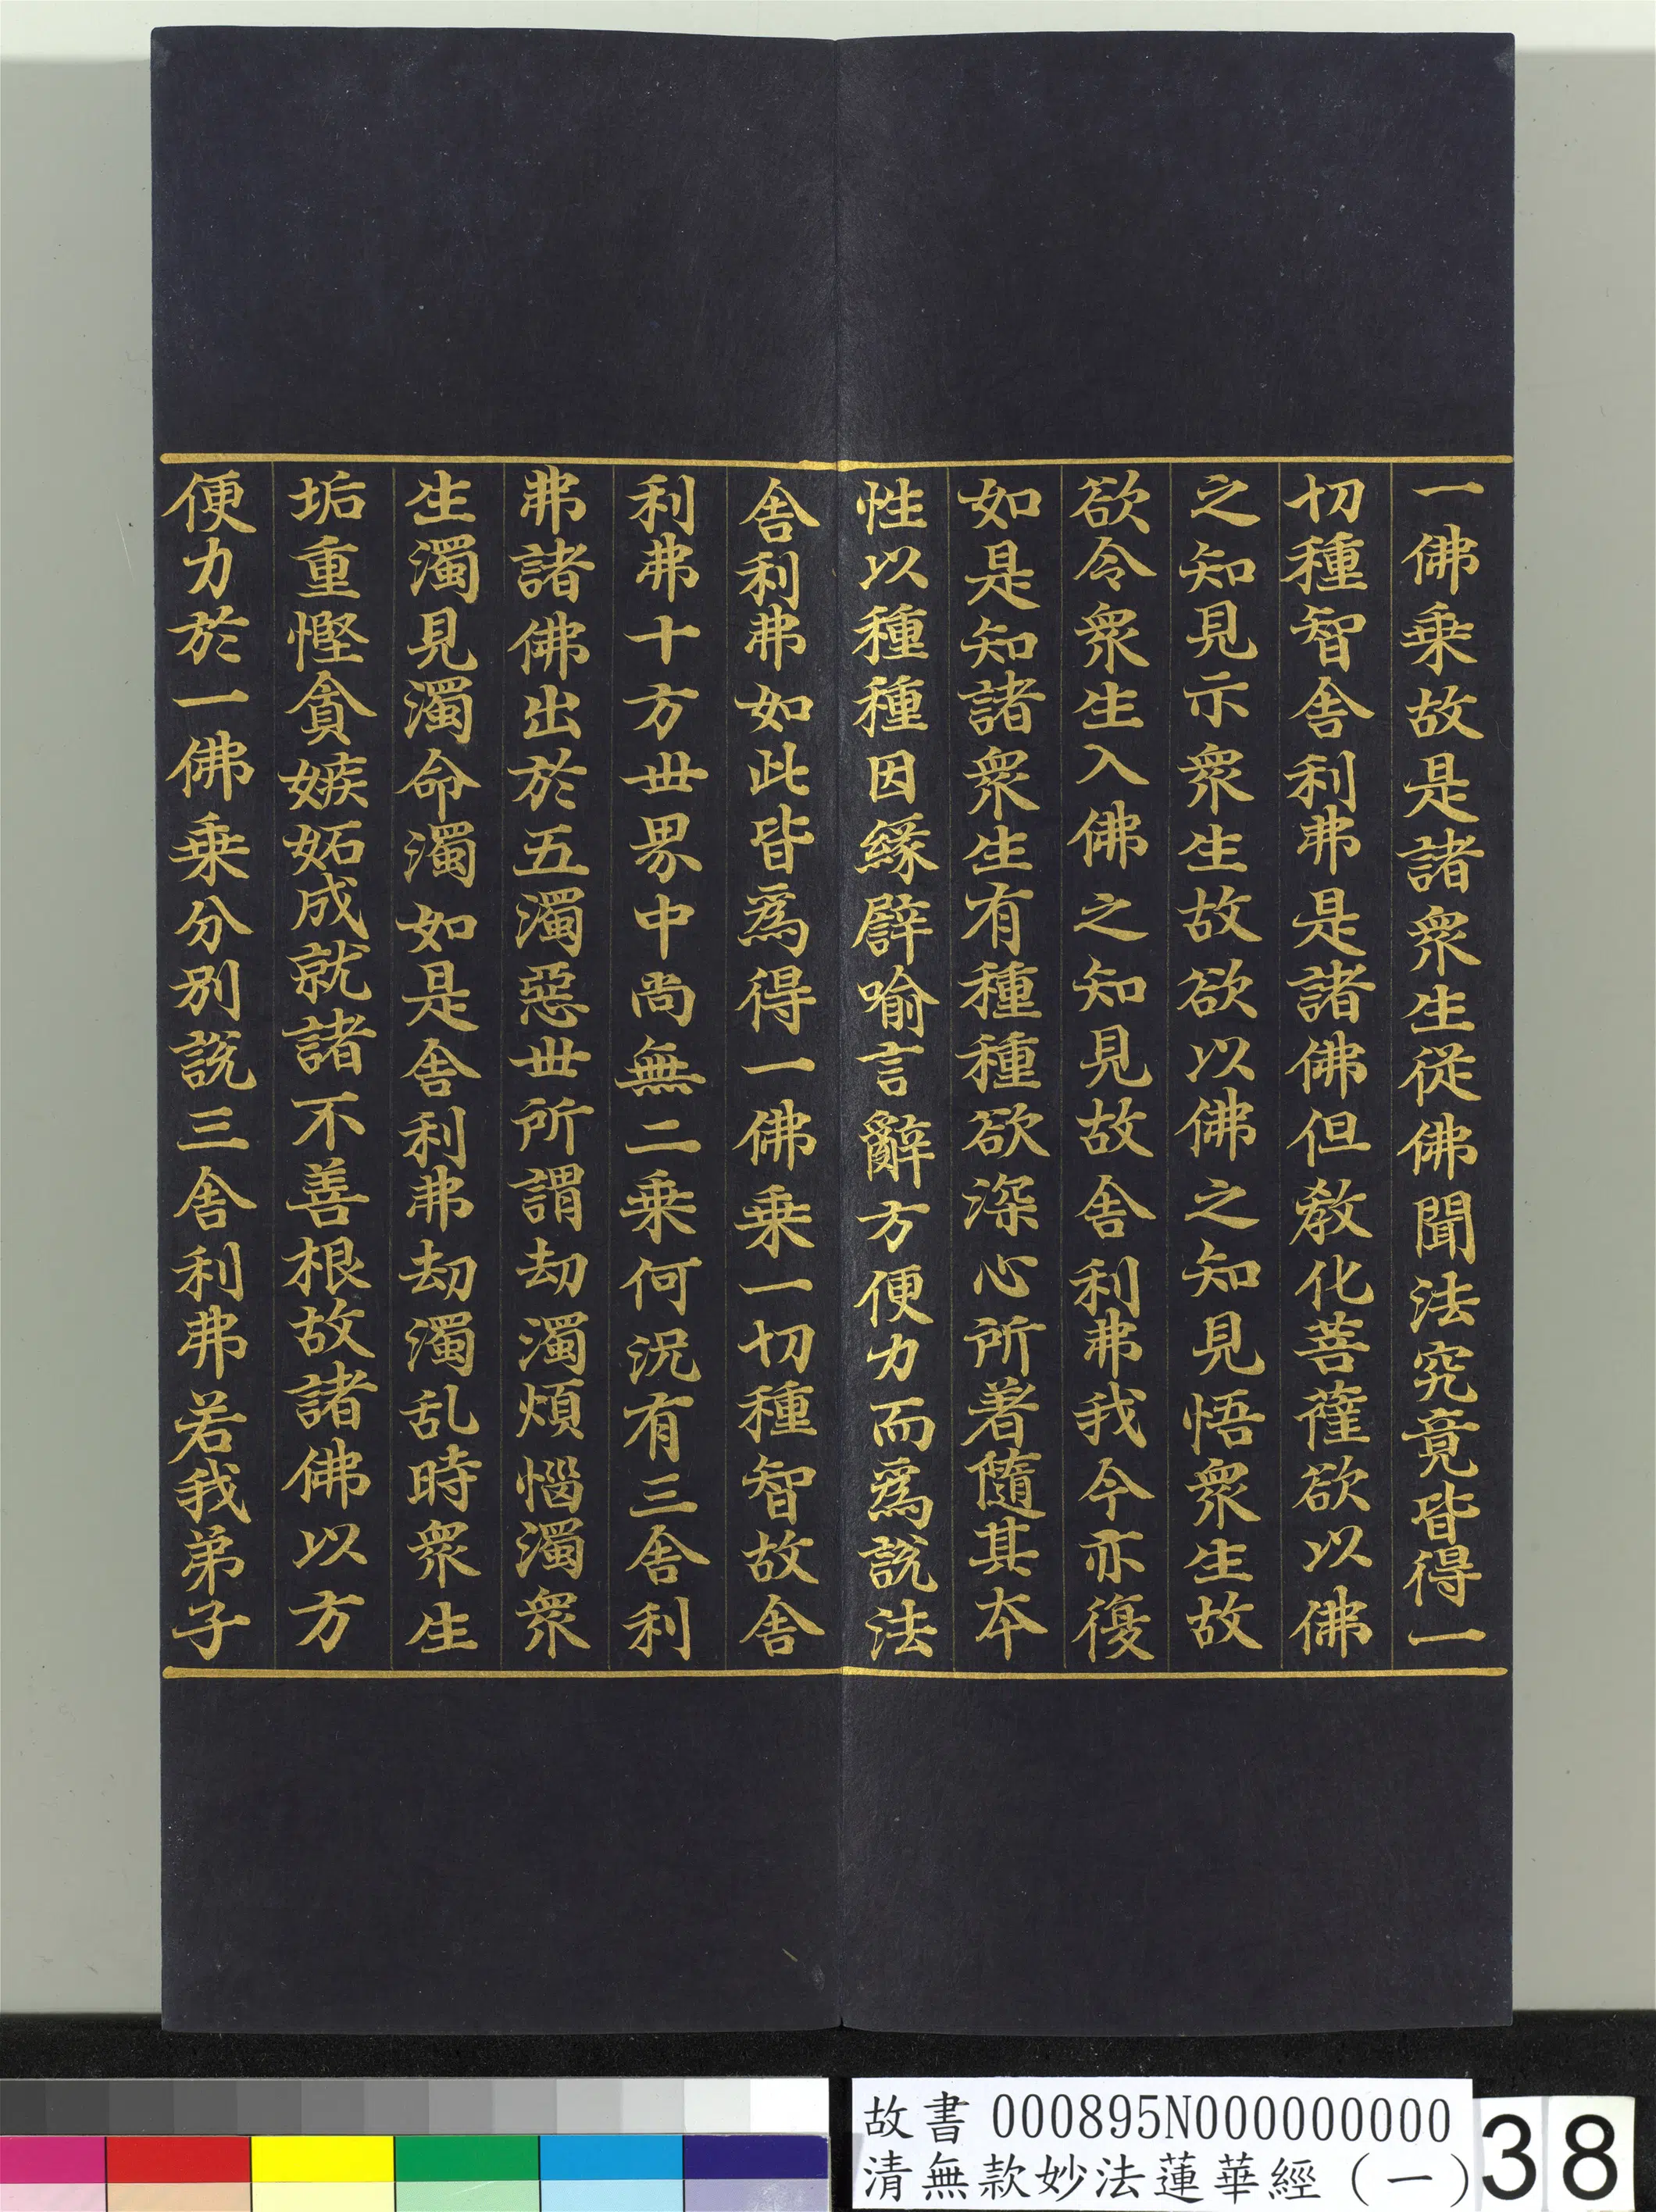 一佛乗故是諸衆生從佛聞法究竟皆得一
切種智舎利弗是諸佛但教化菩薩欲以佛
之知見示衆生故欲以佛之知見悟衆生故
欲令衆生入佛之知見故舎利弗我今亦復
如是知諸衆生有種種欲深心所著隨其本
性以種種因緣譬喻言辭方便力而爲說法
舎利弗如此皆爲得一佛乗一切種智故舎
利弗十方世界中尚無二乗何況有三舎利
弗諸佛出於五濁惡世所謂劫濁煩惱濁衆
生濁見濁命濁如是舎利弗劫濁乱時衆生
垢重慳貪嫉妬成就諸不善根故諸佛以方
便力於一佛乗分別說三舎利弗若我弟子
故書 000895N000000000
清無款妙法蓮華經(一)
38